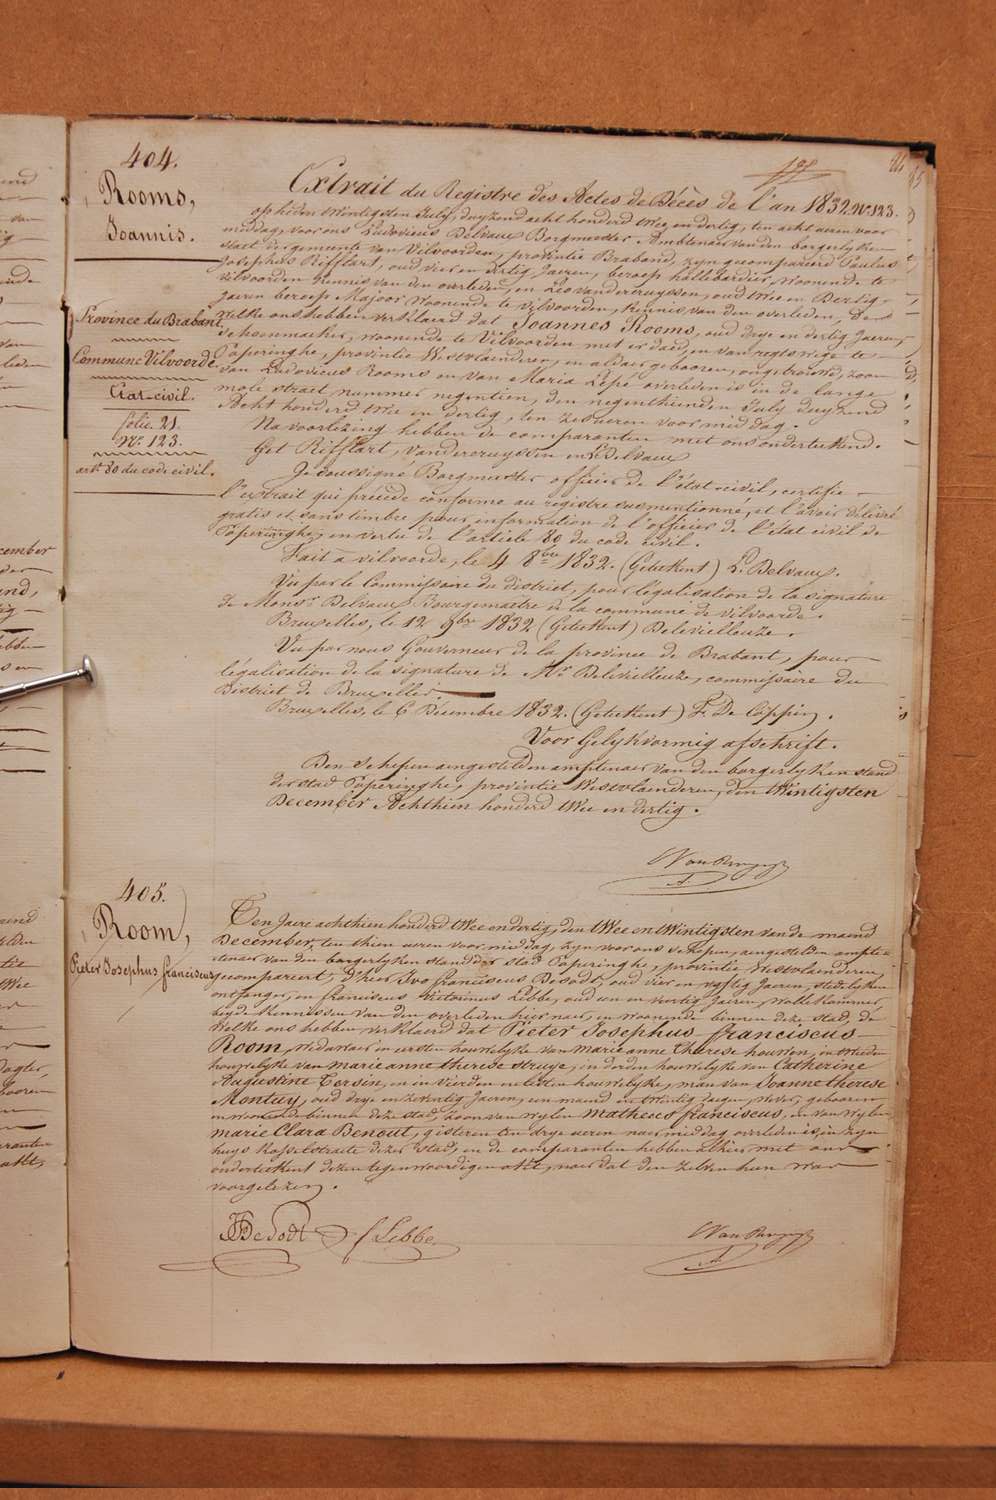 404.
Rooms,
Joannis.
Province du Brabant,
Commune Vilvorde.
Etat-civil.
folio. 21.
No. 123.
art. 80 du code civil.
Extrait du Registre des Actes de Décès de l'an 1832. No. 123.
op heden twintigsten July, duyzend acht honderd twee en dertig, ten acht uren voor
middag, voor ons Ludovicus Delvaux Borgmeester Ambtenaer van den borgerlyken
staet der gemeente van Vilvoorden, provintie Braband, zyn gecompareerd Paulus
Josephus Rifflart, oud vier en dertig Jaeren, beroep hallebardier, woonende te
vilvoorden kennis van den overleden, en Leo vandercruyssen, oud twee en Dertig
Jaeren beroep Majoor woonende te vilvoorden, kennis van den overleden, De
welke ons hebben verklaerd dat Joannes Rooms, oud drye en dertig Jaeren,
schoenmaker, woonende te Vilvoorden met er daed, en van regtswege te
Poperinghe, provintie Westvlaenderen, en aldaer gebooren, ongetrouwd, zoon
van Ludovicus Rooms en van Maria Lepé overleden is in de lange
mole straet nummer negentien, den negenthienden July duyzend
Acht honderd twee en dertig, ten zes uren voor middag.
Na voorlezing hebben de comparanten met ons onderteekend.
Get Rifflart, vandercruyssen en L Delvaux
Je soussigné Borgmeester officier de l'état-civil, certifie
l'extrait qui précède conforme au registre susmentionné, et l'avoir délivré
gratis et sans timbre pour information de l'officier de l'état civil de
Poperinghe, en vertu de l'article 80 du code civil.
Fait à vilvoorde, le 4 8bre 1832. (Geteekent) L. Delvaux.
Vu par le Commissaire du district, pour légalisation de la signature
de Monsr. Delvaux Bourgemaetre de la commune de vilvoorde.
Bruxelles, le 12 9bre 1832 (Geteekent) Delevielleuze.
Vu par nous Gouverneur de la province de Brabant, pour
légalisation de la signature de Mr. Delevielleuze, commissaire du
District de Bruxelles
Bruxelles, le 6 Décembre 1832. (Geteekent) F. De Coppin.
Voor Gelykvormig afschrift.
Den schepen aengestelden amptenaer van den borgerlyken stand
der stad Poperinghe, provintie Westvlaenderen, den twintigsten
December Achthien honderd twee en dertig.
405.
Room,
Pieter Josephus franciscus
Ten Jaere achthien honderd twee en dertig, den twee en twintigsten van de maend
December, ten thien ueren voor middag, zyn voor ons schepen, aengestelden ampte
tenaer van den borgerlyken stand der stad Poperinghe, provintie westvlaenderen,
gecompareert, d'heer Ivo franciscus Desodt, oud vier en vyftig Jaeren, stedelyken
ontfanger, en franciscus Victorinus Lebbe, oud een en veertig Jaeren, wolle kammer,
beyde kennissen van den overleden hier naer, en woonende binnen deze stad, de
welke ons hebben verklaerd dat Pieter Josephus franciscus
Room, weduwaer in eersten houwelyke van marie anne Therese houvion, in tweeden
houwelyke van marie anne therese struye, en derden houwelyke van Catherine
Augustine Cersin, en in vierden en lesten houwelyke, man van Joanne therese
Montuy, oud drye en zeventig Jaeren, een maend en twintig dagen, wever, gebooren
en woonende binnen deze stad, zoon van wylen Matheus franciscus, en van wylen
marie Clara Benout, gisteren ten drye ueren naer middag overleden is, in zyn
huys Kasselstraete dezer stad, en de comparanten hebben alhier met ons
onderteekent dezen tegenwoordigen akt, naer dat den zelven hun was
voorgelezen.
Desodt f Lebbe